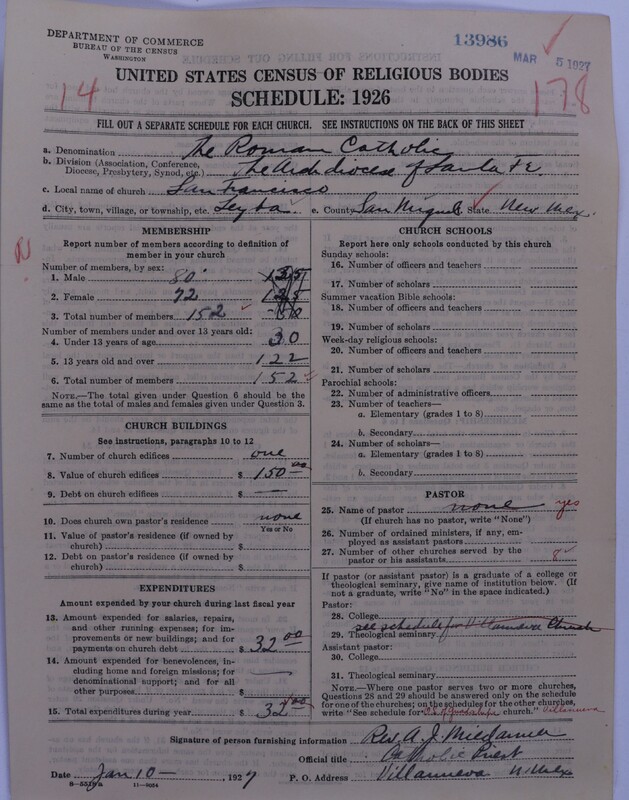 DEPARTMENT OF COMMERCE
BUREAU OF THE CENSUS
WASHINGTON
13986
MAR 5 1927
UNITED STATES CENSUS OF RELIGIOUS BODIES
SCHEDULE: 1926
14
178
FILL OUT A SEPARATE SCHEDULE FOR EACH CHURCH. SEE INSTRUCTIONS ON THE BACK OF THIS SHEET
a. Denomination The Roman Catholic
b. Division (Association, Conference, Diocese, Presbytery, Synod, etc.) The Archdiocese of Santa Fe
c. Local name of church San Francisco
d. City, town, village, or township, etc. Leyba e. County San Miguel State New Mex.
MEMBERSHIP
Report number of members according to definition of
member in your church
Number of members, by sex:
1. Male 80
2. Female 72
3. Total number of members 152
Number of members under and over 13 years old:
4. Under 13 years of age 30
5. 13 years old and over 122
6. Total number of members 152
NOTE.—The total given under Question 6 should be
same as the total of males and females given under Question 3.
CHURCH BUILDINGS
See instructions, paragraphs 10 to 12
7. Number of church edifices one
8. Value of church edifices $ 150.00
9. Debt on church edifices $ —
10. Does church own pastor's residence none
Yes or No
11. Value of pastor's residence (if owned by
church) $
12. Debt on pastor's residence (if owned by
church) $
EXPENDITURES
Amount expended by your church during last fiscal year
13. Amount expended for salaries, repairs,
and other running expenses; for im-
provements or new buildings; and for
payments on church debt $ 32.00
14. Amount expended for benevolences, in-
cluding home and foreign missions; for
denominational support; and for all
other purposes $ —
15. Total expenditures during year $ 32.00
CHURCH SCHOOLS
Report here only schools conducted by this church
Sunday schools:
16. Number of officers and teachers
17. Number of scholars
Summer vacation Bible schools:
18. Number of officers and teachers
19. Number of scholars
Week-day religious schools:
20. Number of officers and teachers
21. Number of scholars
Parochial schools:
22. Number of administrative officers
23. Number of teachers—
a. Elementary (grades 1 to 8)
b. Secondary
24. Number of scholars—
a. Elementary (grades 1 to 8)
b. Secondary
PASTOR
25. Name of pastor none yes
(If church has no pastor, write "None")
26. Number of ordained ministers, if any, em-
ployed as assistant pastors
27. Number of other churches served by the
pastor or his assistants 8
If pastor (or assistant pastor) is a graduate of a college or
theological seminary, give name of institution below. (If
not a graduate, write "No" in the space indicated.)
Pastor:
28. College
see schedule for Villanueva Church
29. Theological seminary
Assistant pastor:
30. College
31. Theological seminary
NOTE.—Where one pastor serves two or more churches,
Questions 28 and 29 should be answered only on the schedule
for one of the churches; on the schedules for the other churches,
write "See schedule for church." Villanueva
Signature of person furnishing information Rev. A. J.
Official title Catholic Priest
Date Jan 10 — , 1927 P. O. Address Villanueva N. Mex
11—9024